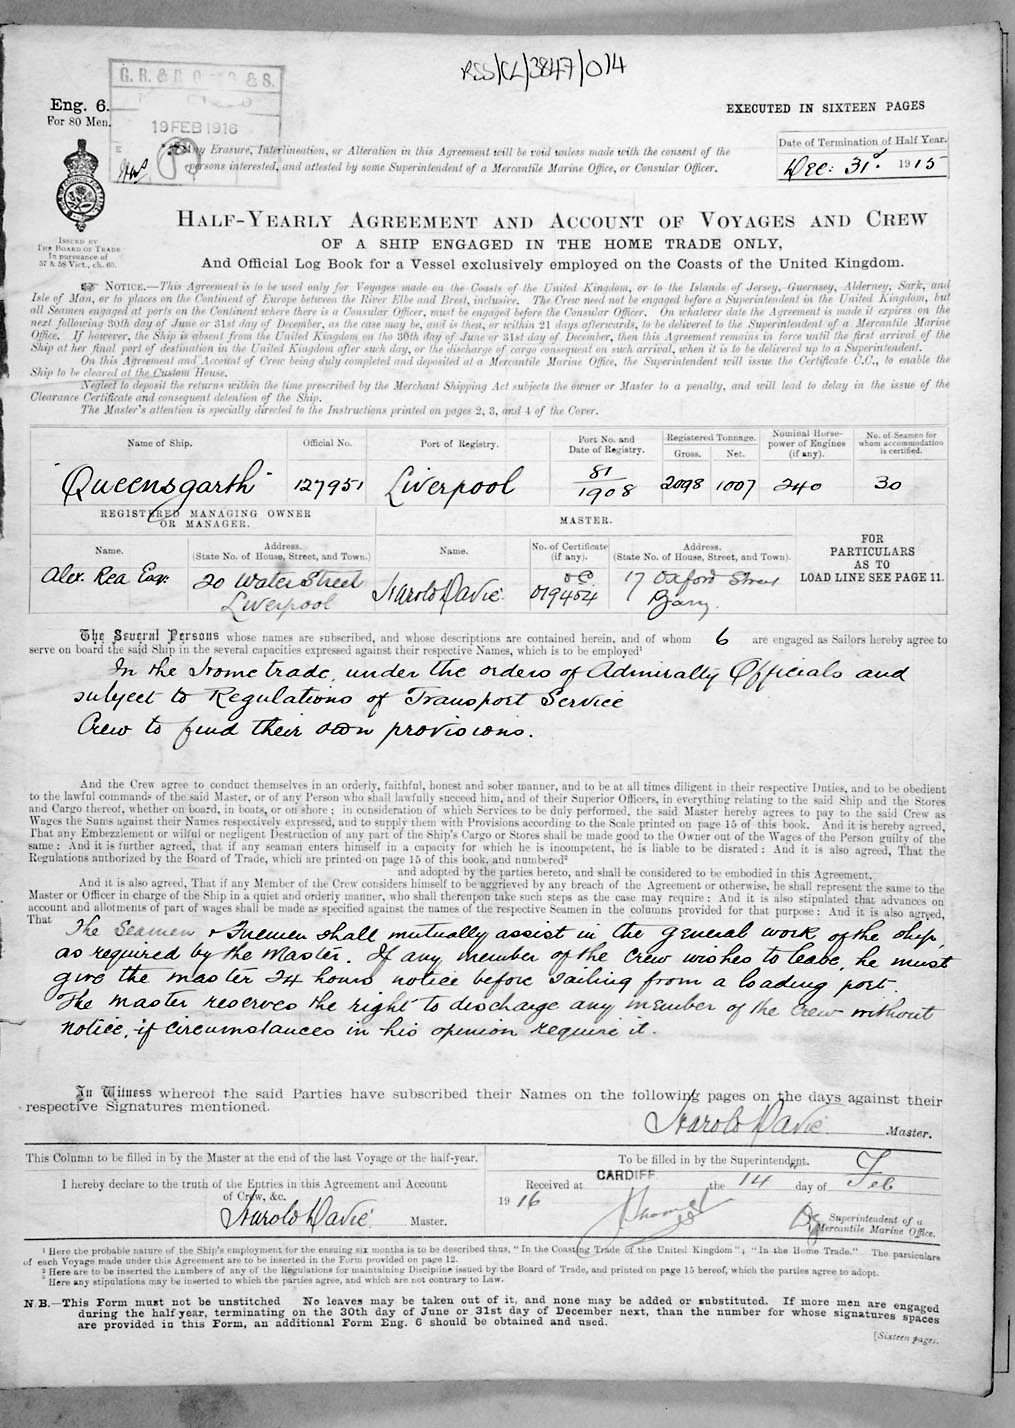 RSS/CL/3847/014
G. R. & S. & S.
19 FEB 1916
Eng. 6.
For 80 Men.
EXECUTED IN SIXTEEN PAGES
Any Erasure, Interlineation, or Alteration in this Agreement will be void unless made with the consent of the
persons interested, and attested by some Superintendent of a Mercantile Marine Office, or Consular Officer.
Date of Termination of Half Year.
Dec: 31st. 1915
ISSUED BY
THE BOARD OF TRADE
In pursuance of
57 & 58 Vict., ch. 60.
HALF-YEARLY AGREEMENT AND ACCOUNT OF VOYAGES AND CREW
OF A SHIP ENGAGED IN THE HOME TRADE ONLY,
And Official Log Book for a Vessel exclusively employed on the Coasts of the United Kingdom.
NOTICE.—This Agreement is to be used only for Voyages made on the Coasts of the United Kingdom, or to the Islands of Jersey, Guernsey, Alderney, Sark, and
Isle of Man, or to places on the Continent of Europe between the River Elbe and Brest, inclusive. The Crew need not be engaged before a Superintendent in the United Kingdom, but
all Seamen engaged at ports on the Continent where there is a Consular Officer, must be engaged before the Consular Officer. On whatever date the Agreement is made it expires on the
next following 30th day of June or 31st day of December, as the case may be, and is then, or within 21 days afterwards, to be delivered to the Superintendent of a Mercantile Marine
Office. If however, the Ship is absent from the United Kingdom on the 30th day of June or 31st day of December, then this Agreement remains in force until the first arrival of the
Ship at her final port of destination in the United Kingdom after such day, or the discharge of cargo consequent on such arrival, when it is to be delivered up to a Superintendent.
On this Agreement and Account of Crew being duly completed and deposited at a Mercantile Marine Office, the Superintendent will issue the Certificate C.C., to enable the
Ship to be cleared at the Custom House.
Neglect to deposit the returns within the time prescribed by the Merchant Shipping Act subjects the owner or Master to a penalty, and will lead to delay in the issue of the
Clearance Certificate and consequent detention of the Ship.
The Master's attention is specially directed to the Instructions printed on pages 2, 3, and 4 of the Cover.
Name of Ship. Official No. Port of Registry. Port No. and Date of Registry. Registered Tonnage. Gross. Net. Nominal Horse-power of Engines (if any). No. of Seamen for whom accommodation is certified.
"Queensgarth" 127951 Liverpool 81/1908 2098 1007 240 30
REGISTERED MANAGING OWNER
OR MANAGER.
MASTER.
FOR
PARTICULARS
AS TO
LOAD LINE SEE PAGE 11.
Name. Address. (State No. of House, Street, and Town.) Name. No. of Certificate (if any). Address. (State No. of House, Street, and Town).
Alex. Rea Esqr. 20 Water Street Harold Davie OC 019454 17 Oxford Street
Liverpool Barry.
The Several Persons whose names are subscribed, and whose descriptions are contained herein, and of whom 6 are engaged as Sailors hereby agree to
serve on board the said Ship in the several capacities expressed against their respective Names, which is to be employed¹
In the Home trade, under the orders of Admiralty Officials and
subject to Regulations of Transport Service
Crew to find their own provisions.
And the Crew agree to conduct themselves in an orderly, faithful, honest and sober manner, and to be at all times diligent in their respective Duties, and to be obedient
to the lawful commands of the said Master, or of any Person who shall lawfully succeed him, and of their Superior Officers, in everything relating to the said Ship and the Stores
and Cargo thereof, whether on board, in boats, or on shore; in consideration of which Services to be duly performed, the said Master hereby agrees to pay to the said Crew as
Wages the Sums against their Names respectively expressed, and to supply them with Provisions according to the Scale printed on page 15 of this book. And it is hereby agreed,
That any Embezzlement or wilful or negligent Destruction of any part of the Ship's Cargo or Stores shall be made good to the Owner out of the Wages of the Person guilty of the
same: And it is further agreed, that if any seaman enters himself in a capacity for which he is incompetent, he is liable to be disrated: And it is also agreed, That the
Regulations authorized by the Board of Trade, which are printed on page 15 of this book, and numbered²
and adopted by the parties hereto, and shall be considered to be embodied in this Agreement.
And it is also agreed, That if any Member of the Crew considers himself to be aggrieved by any breach of the Agreement or otherwise, he shall represent the same to the
Master or Officer in charge of the Ship in a quiet and orderly manner, who shall thereupon take such steps as the case may require: And it is also stipulated that advances on
account and allotments of part of wages shall be made as specified against the names of the respective Seamen in the columns provided for that purpose: And it is also agreed,
That
The Seamen & Firemen shall mutually assist in the general work of the ship,
as required by the Master. If any member of the crew wishes to leave, he must
give the master 24 hours notice before sailing from a loading port.
The master reserves the right to discharge any member of the crew without
notice, if circumstances in his opinion require it.
In Witness whereof the said Parties have subscribed their Names on the following pages on the days against their
respective Signatures mentioned.
Harold Davie Master.
This Column to be filled in by the Master at the end of the last Voyage or the half-year.
I hereby declare to the truth of the Entries in this Agreement and Account
of Crew, &c.
Harold Davie Master.
To be filled in by the Superintendent.
Received at CARDIFF the 14 day of Feb
1916
Dy Superintendent of a
Mercantile Marine Office.
¹ Here the probable nature of the Ship's employment for the ensuing six months is to be described thus, "In the Coasting Trade of the United Kingdom"; "In the Home Trade." The particulars
of each Voyage made under this Agreement are to be inserted in the Form provided on page 12.
² Here are to be inserted the numbers of any of the Regulations for maintaining Discipline issued by the Board of Trade, and printed on page 15 hereof, which the parties agree to adopt.
³ Here any stipulations may be inserted to which the parties agree, and which are not contrary to Law.
N.B.—This Form must not be unstitched No leaves may be taken out of it, and none may be added or substituted. If more men are engaged
during the half year, terminating on the 30th day of June or 31st day of December next, than the number for whose signatures spaces
are provided in this Form, an additional Form Eng. 6 should be obtained and used.
[Sixteen pages.